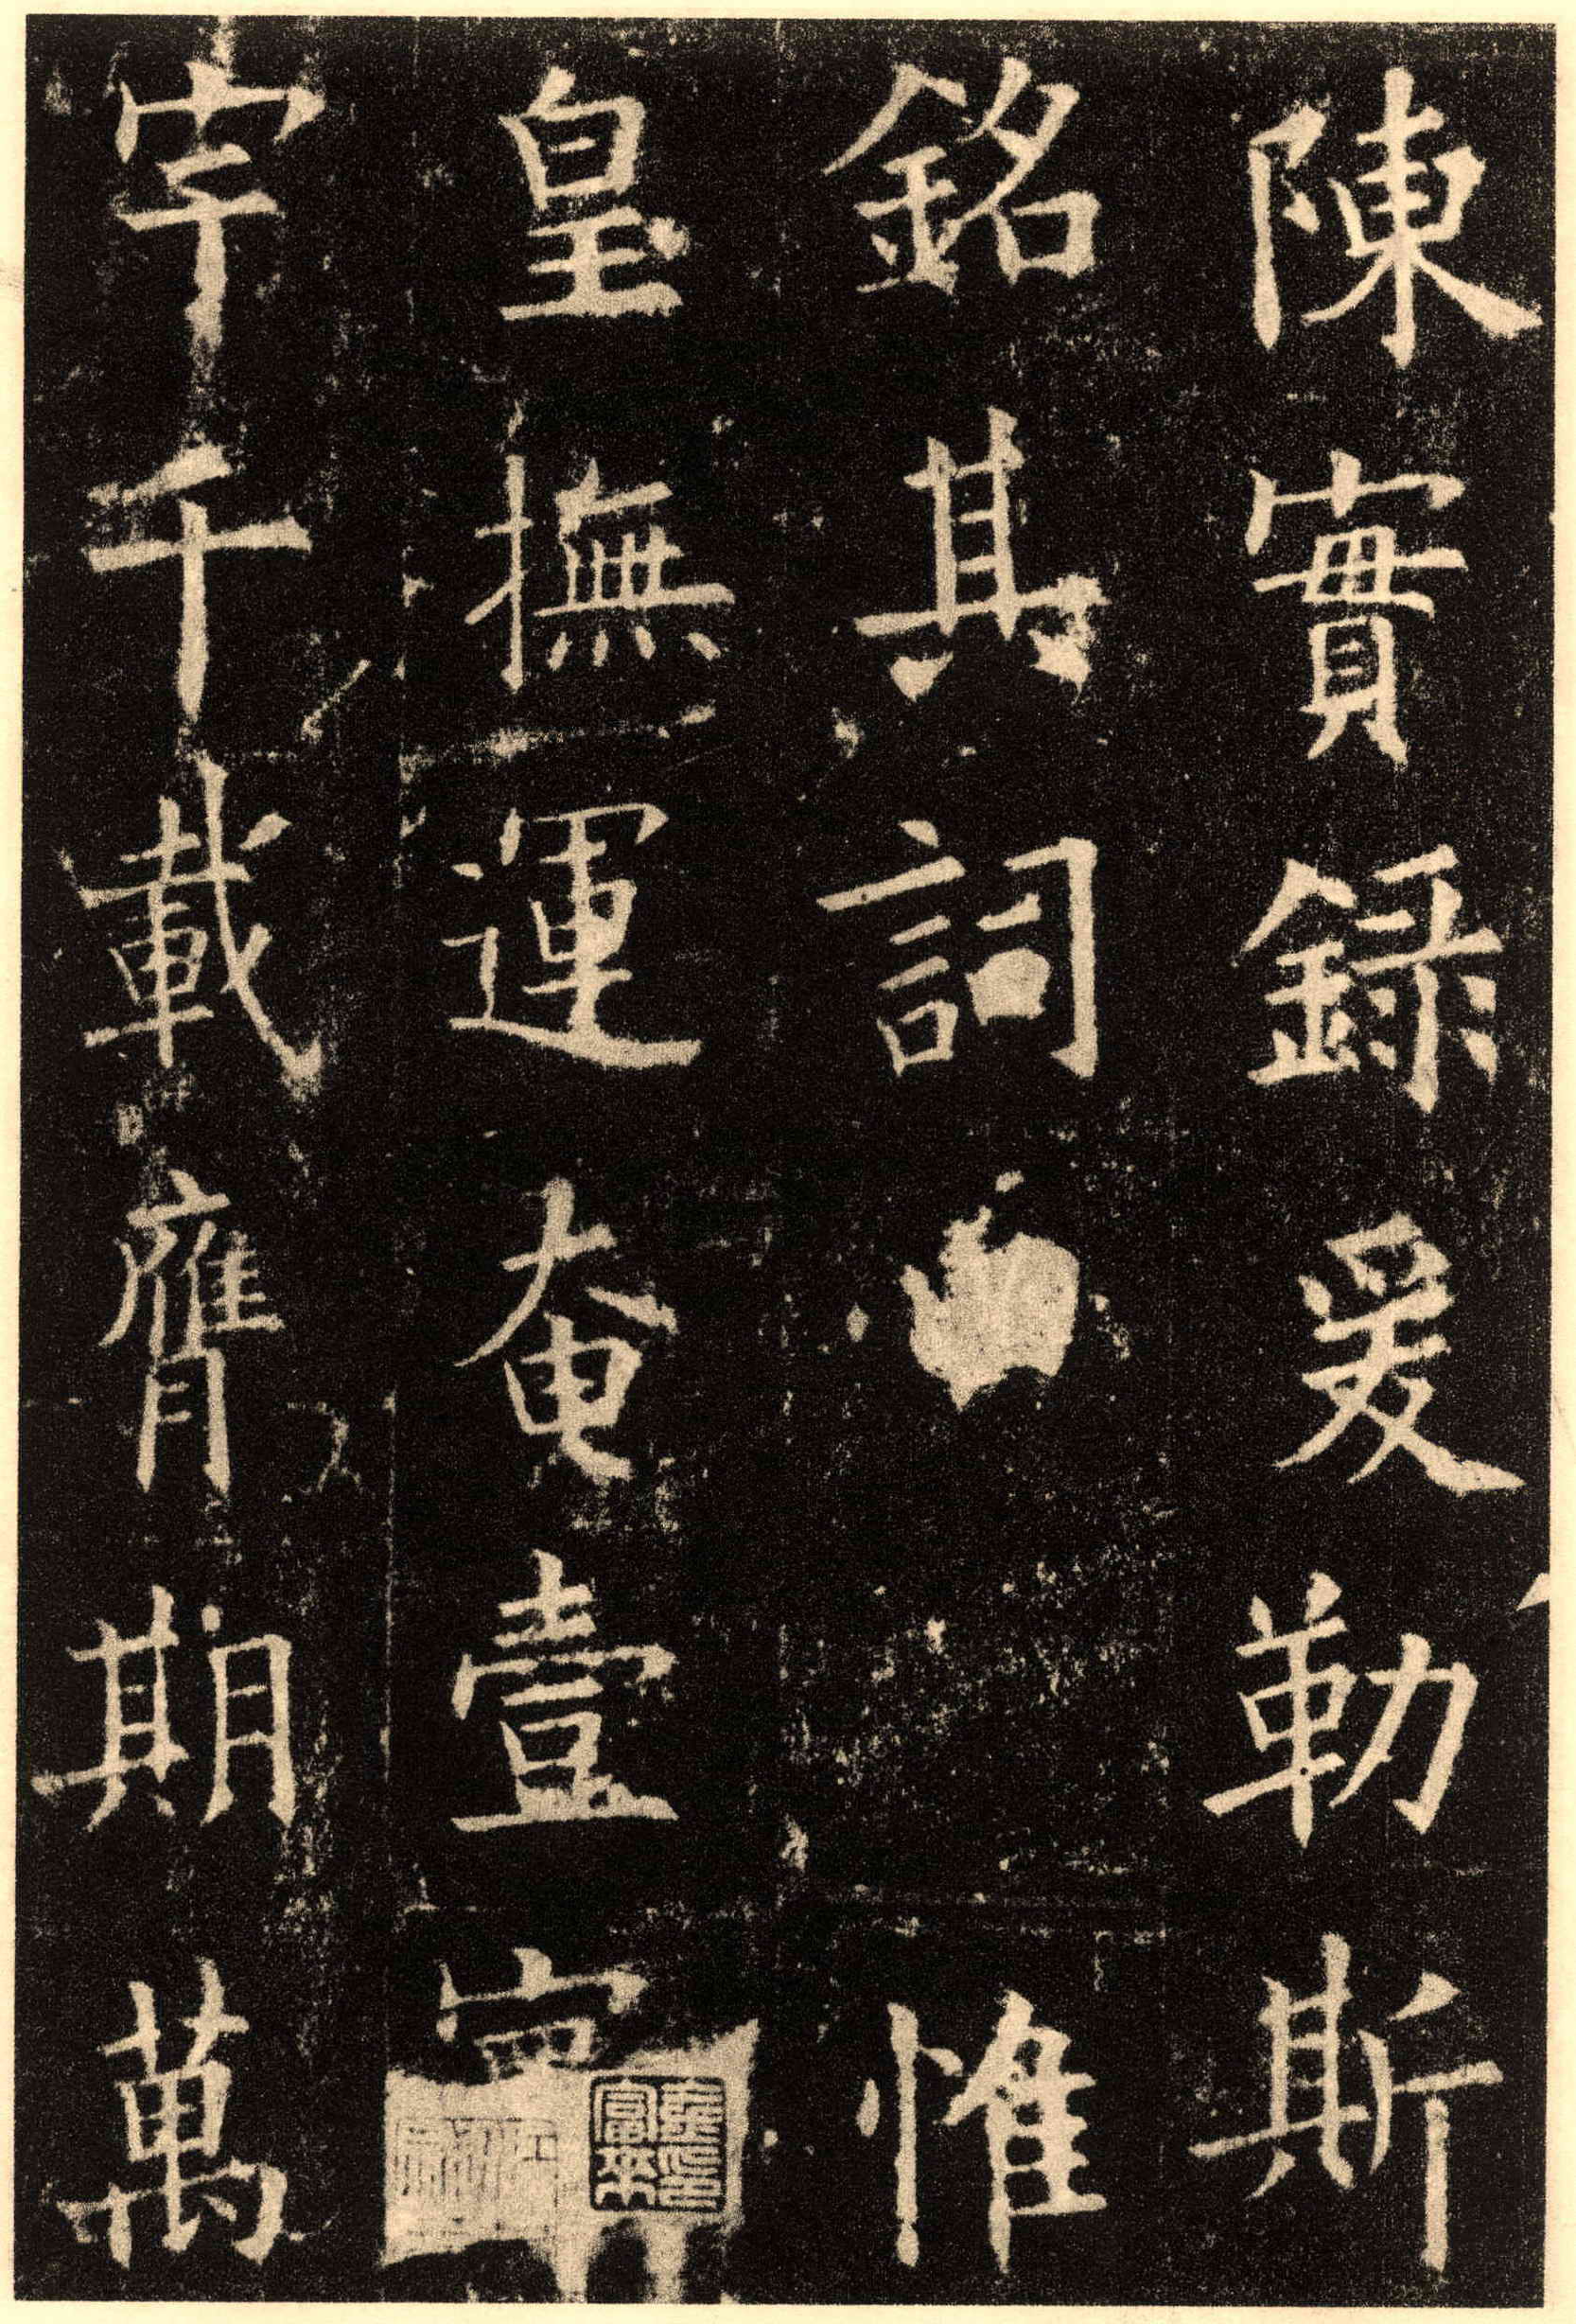 陳實錄爰勒斯
銘其詞惟
皇撫運奄壹寰
宇千載膺期萬